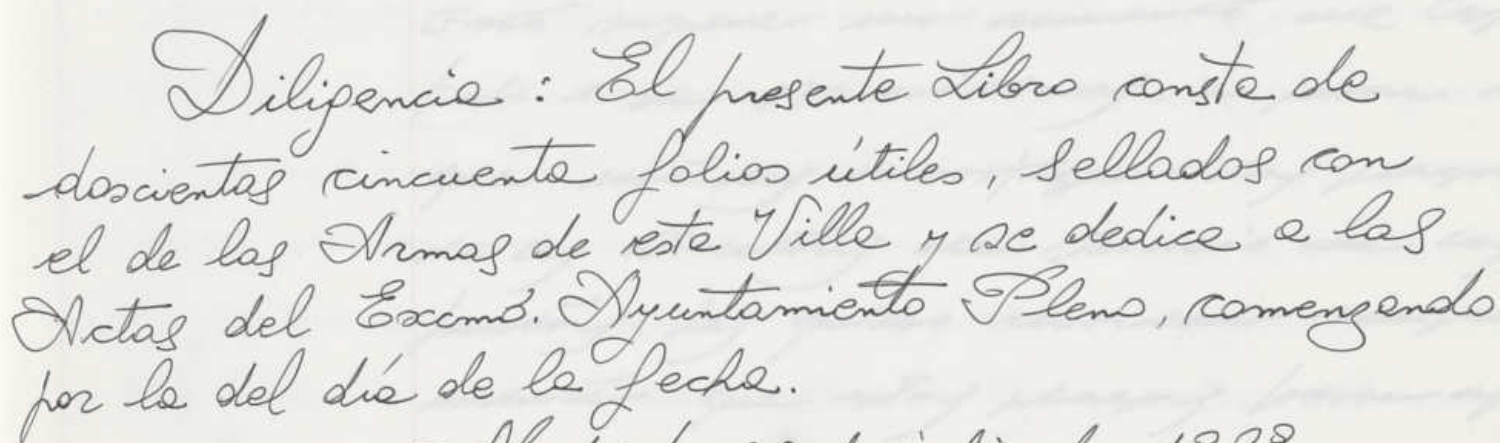 Diligencia: El presente Libro consta de
doscientas cincuenta folios útiles, sellados con
el de las Armas de esta Villa y se dedica a las
Actas del Excmó. Ayuntamiento Pleno, comenzando
por la del día de la fecha.